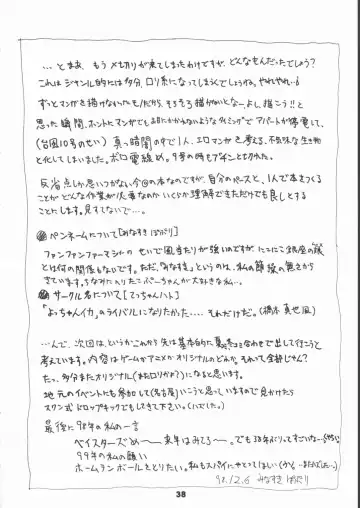 …とまあ、もう〆切りが来てしまったわけですが、どんなもんだったでしょう？
これはジャンル的には多分、ロリ系になってしまうんでしょうね。やれやれ…
ずっとマンガを描けなかったも
そろそろ描かないとなーよし、描こう!!と
思った瞬間、ホントにマンガでもお目にかかれないようなタイミングでアパートが停電して、
(台風10号のせい) 真っ暗闇の中で1人、エロマンガを考える、不気味な生き物
と化してしまいました。ボロ電線め。9号の時もアブなかったし。
反省点しか思いつかない今回の本なのですが、自分のペースと、1人で本をつくる
ことがどんな作業が必要なのかいくらか理解できただけでも良しとする
ことにします。見すてないで…。
ペンネームについて[みなすき ぽぷり]
ファンファンファーマシィーのせいで風当たりが強いのですが、
とは何の関係もないです。ただ、「みなすき」というのは、私の
きています。ちなみに
が大好きな私…。
サークル名について[てっちゃんハト]
「よっちゃんイカ」のライバルになりたかった……それだけだ。(橋本真也風)
…んで、次回は、というかこれから先は基本的に
合わせで出して行こうと
考えています。内容はゲームかアニメかオリジナルのどれか。それって全部じゃん？
たっ、多分またオリジナル(またロリかよ?)になると思います。
地元のイベントにも参加して(名古屋)いこうと思っていますので見かけたら
スワン式ドロップキックでもして下さい。
最後に98年の私の一言
ベイスターズめ〜〜 来年はみてろ〜。でも38年ぶりってすごいな…
99年の私の願い
ホームランボールをとりたい。私もスパイにやとってほしい
98.12.6 みなすき ぽぷり
38